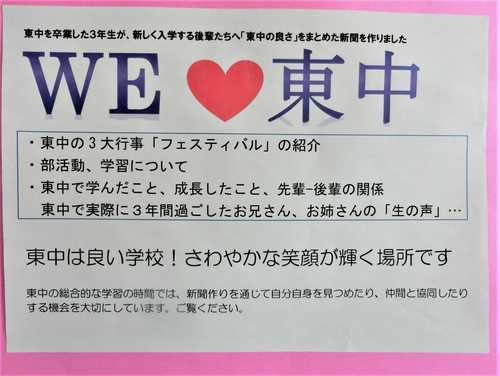 東中を卒業した3年生が、新しく入学する後輩たちへ「東中の良さ」をまとめた新聞を作りました
WE ♥ 東中
・東中の3大行事「フェスティバル」の紹介
・部活動、学習について
・東中で学んだこと、成長したこと、先輩-後輩の関係
東中で実際に3年間過ごしたお兄さん、お姉さんの「生の声」…
東中は良い学校！さわやかな笑顔が輝く場所です
東中の総合的な学習の時間では、新聞作りを通じて自分自身を見つめたり、仲間と協同したり
する機会を大切にしています。ご覧ください。